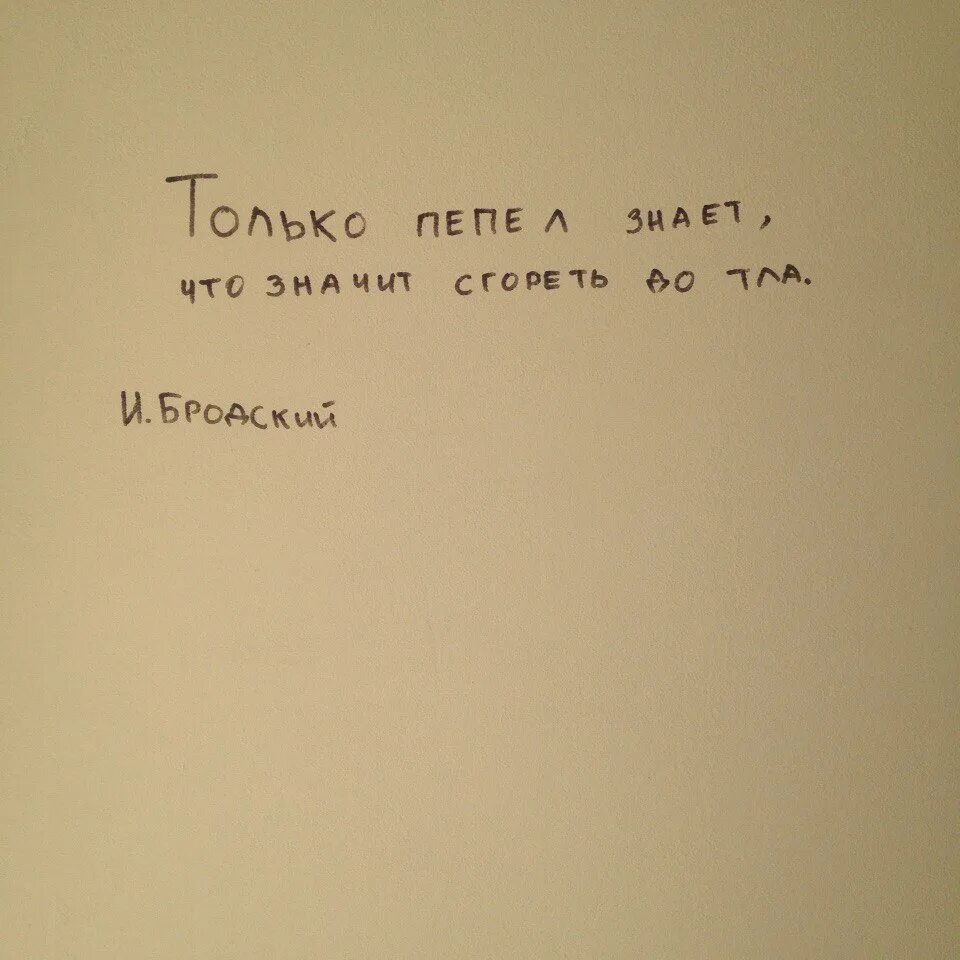 Только пепел знает,
что значит сгореть до тла.
И. Бродский